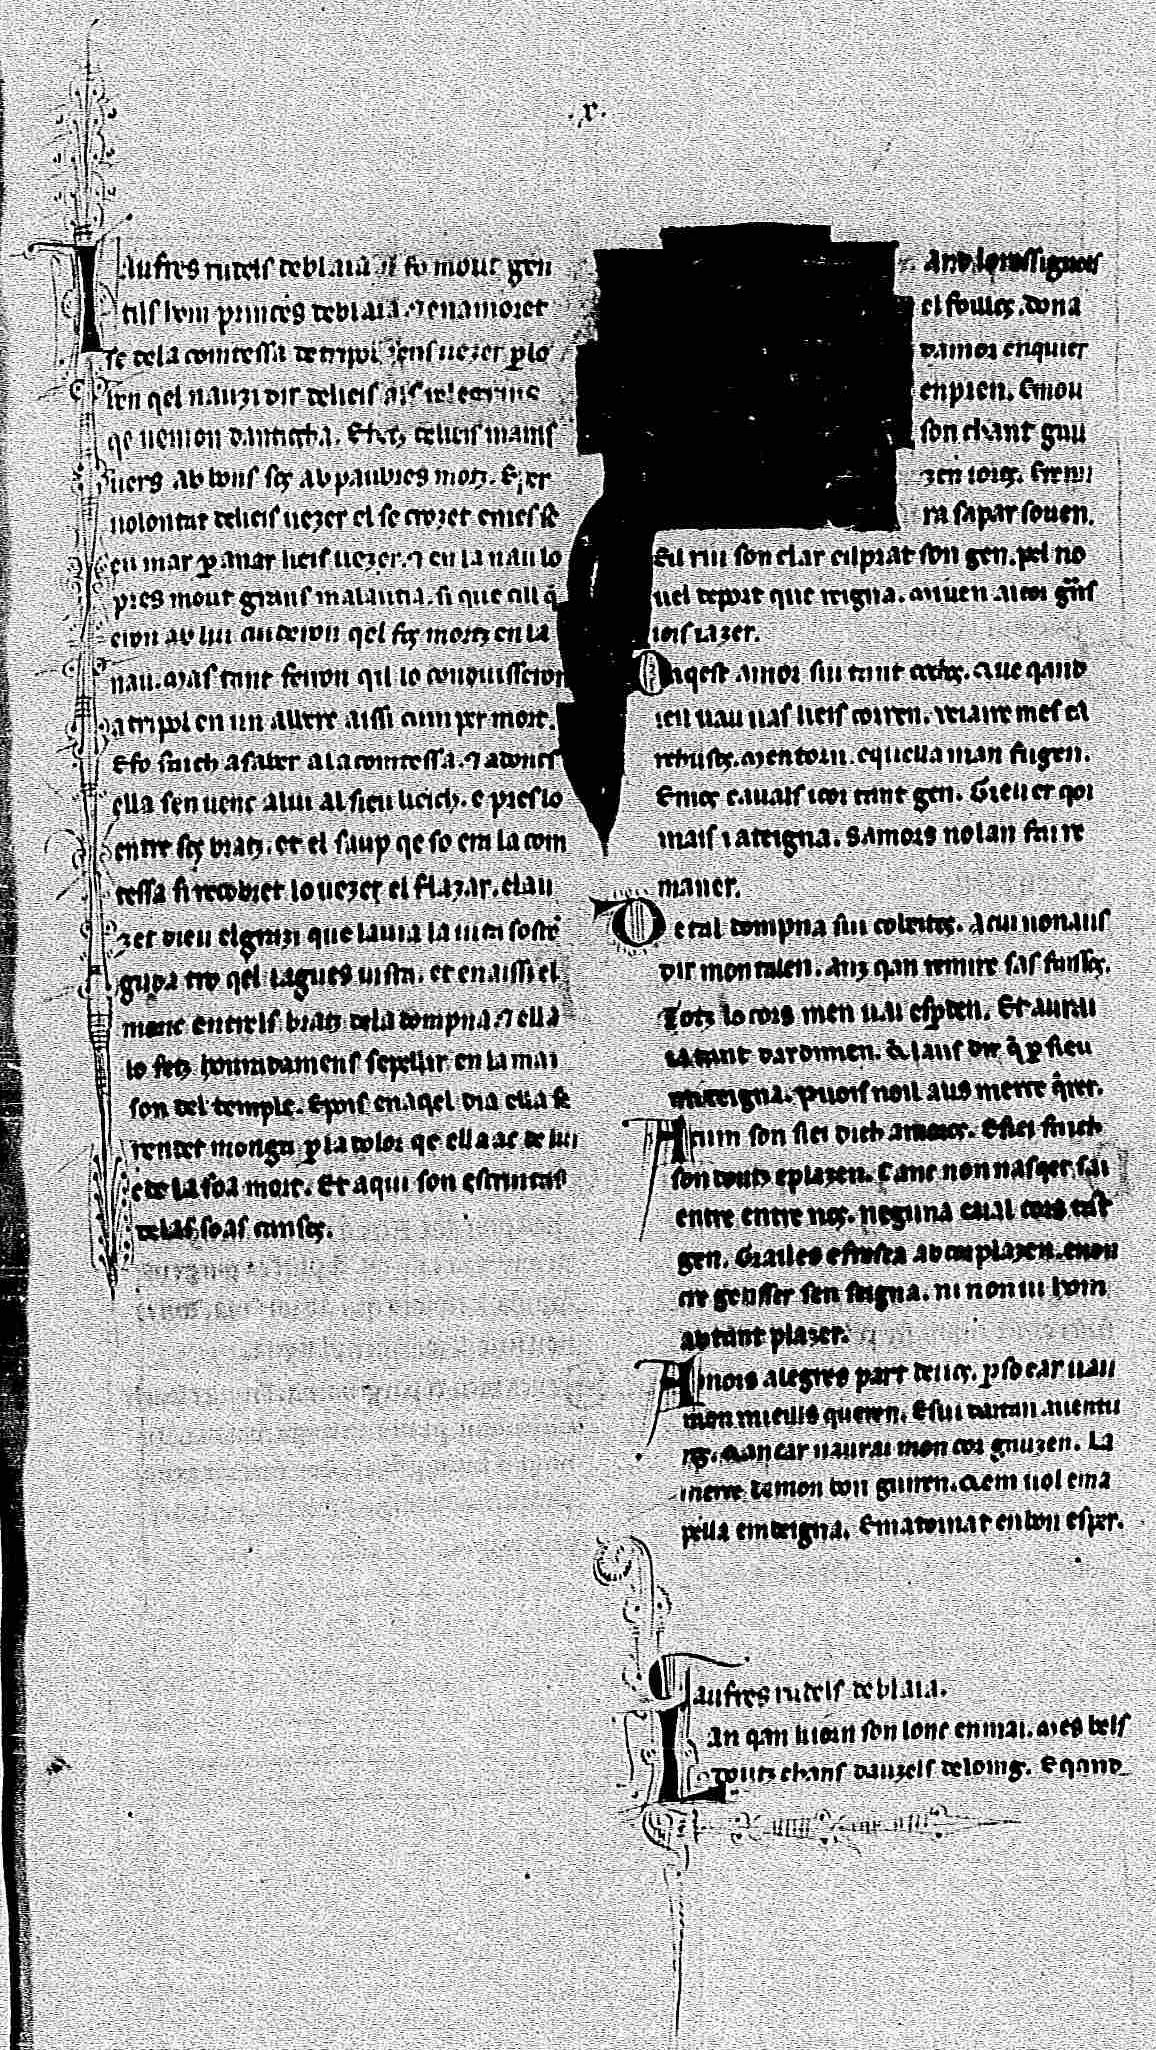 .x.
Iaufres rudels de blaia si fo mout gen
tils hom princes de blaia. ⁊ enamoret
se de la comtessa de tripol senes uezer p lo
ben qel nauzi dir de lieis als pelegrins
qe uenion dantiocha. E fetz de lieis mains
uers ab bons sos ab paubres motz. E per
uolontat de lieis uezer el se crozet e mes se
en mar p anar lieis uezer. ⁊ en la nau lo
pres mout grans malautia. si que cill q̄
eron ab lui cuideron qel fos mortz en la
nau. mas tant feiron qil lo conduisseron
a tripol en un alberc aissi cum per mort.
E fo faich a saber a la comtessa. ⁊ adoncs
ella sen uenc a lui al sieu lieich. e pres lo
entre sos bratz. et el saup qe so era la com
tessa si recobret lo uezer el flazar. e lau
zet dieu el grazi que lauia la uida soste
guda tro qel lagues uista. et enaissi el
moric entrels bratz de la dompna. ⁊ ella
lo fetz honradamens sepellir en la mai
son del temple. E pois en aqel dia ella se
rendet monga p la dolor qe ella ac de lui
e de la soa mort. Et aqui son escriutas
de las soas cansos.
Qand lo rossignols
el foillos. dona
damor e nquier
e npren. E mou
son chant gau
zen ioios. E remi
ra sa par souen.
E il riu son clar e il prat son gen. pel no
uel deport que reigna. mi uen al cor grās
iois iazer.
Daqest amor sui tant cochos. Que qand
ieu uau uas lieis corren. Veiaire mes ca
rehusos. Mentorn. e quella man fugen.
E mos cauals i cor tant gen. Greu er qoi
mais i ateigna. Samors no lan fai re
maner.
De tal dompna sui cobeitos. A cui non aus
dir mon talen. Anz qan remire sas faissos.
Totz lo cors men uai esperden. Et aurai
ia tant dardimen. Qeill aus dir q̄ p sieu
mi teigna. Puois noil aus merce q̄rer.
A cum son siei dich amoros. E siei faich
son doutz e plazen. Canc non nasqet sai
entre entre nos. neguna caia l cors tāt
gen. Grailes es fresca ab cor plazen. e non
cre gensser sen seigna. ni non ui hom
ab tant plazer.
Amors alegres part de uos. p so car uau
mon mieills queren. E sui daitan auentu
ros. Qancar naurai mon cor gauzen. La
merce de mon bon guiren. Qem uol e ma
pella e m deigna. E ma tornat en bon esper.
Iaufres rudels de blaia.
Lan qan li iorn son lonc en mai. Mes bels
doutz chans dauzels de loing. E qand